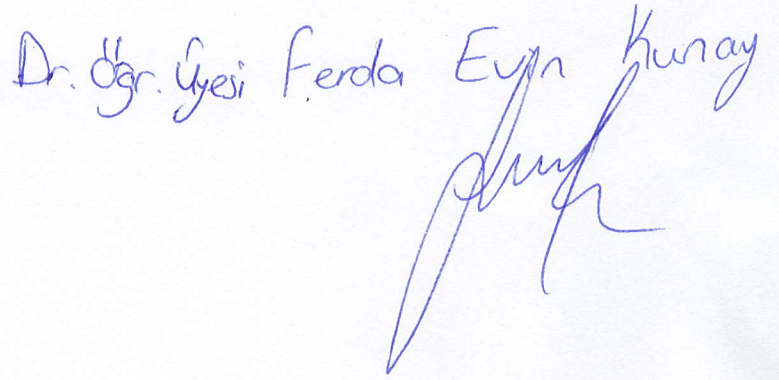 Dr. Öğr. Üyesi Ferda Evin Kunay